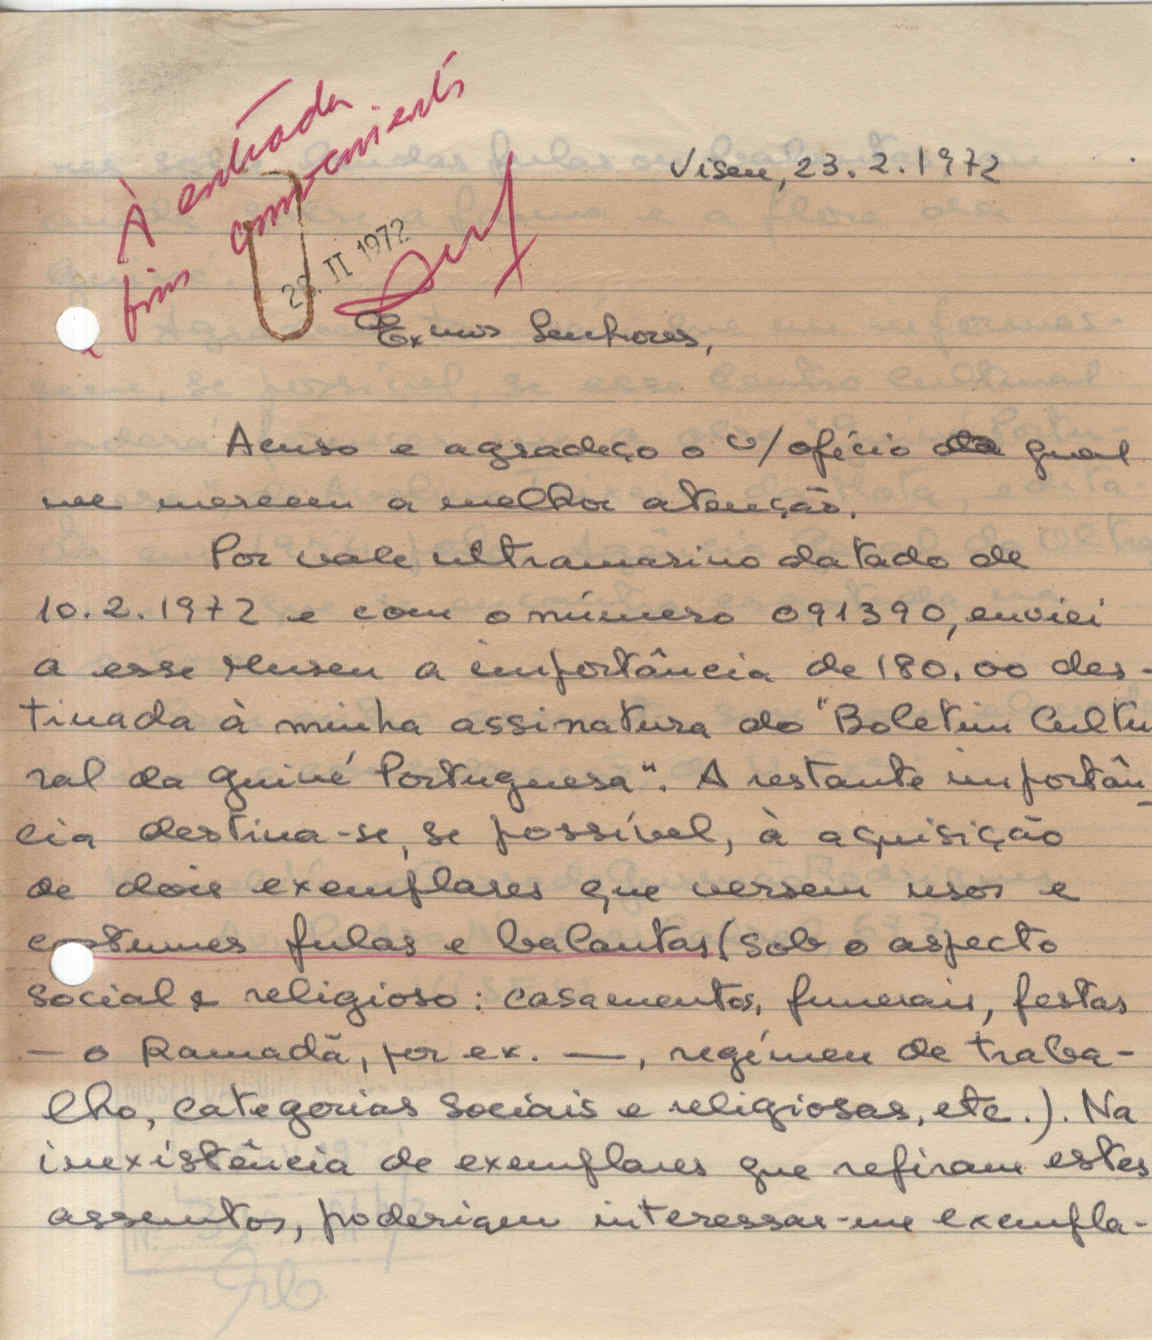 À entrada
e fins convenientes
28. II 1972
Viseu, 23.2.1972
Exmos Senhores,
Acuso e agradeço o v/ ofício da qual
me merecem a melhor atenção.
Por vale ultramarino datado de
10.2.1972 e com o número 091390, enviei
a esse Museu a importância de 180.00 des-
tinada à minha assinatura do "Boletim Cultu
ral da Guiné Portuguesa". A restante importân-
cia destina-se, se possível, à aquisição
de dois exemplares que versem usos e
costumes fulas e balantas (sob o aspecto
social e religioso: casamentos, funerais, festas
— o Ramadã, por ex. —, regímen de traba-
lho, categorias sociais e religiosas, etc.). Na
inexistência de exemplares que refiram estes
assuntos, poderiam interessar-me exempla-